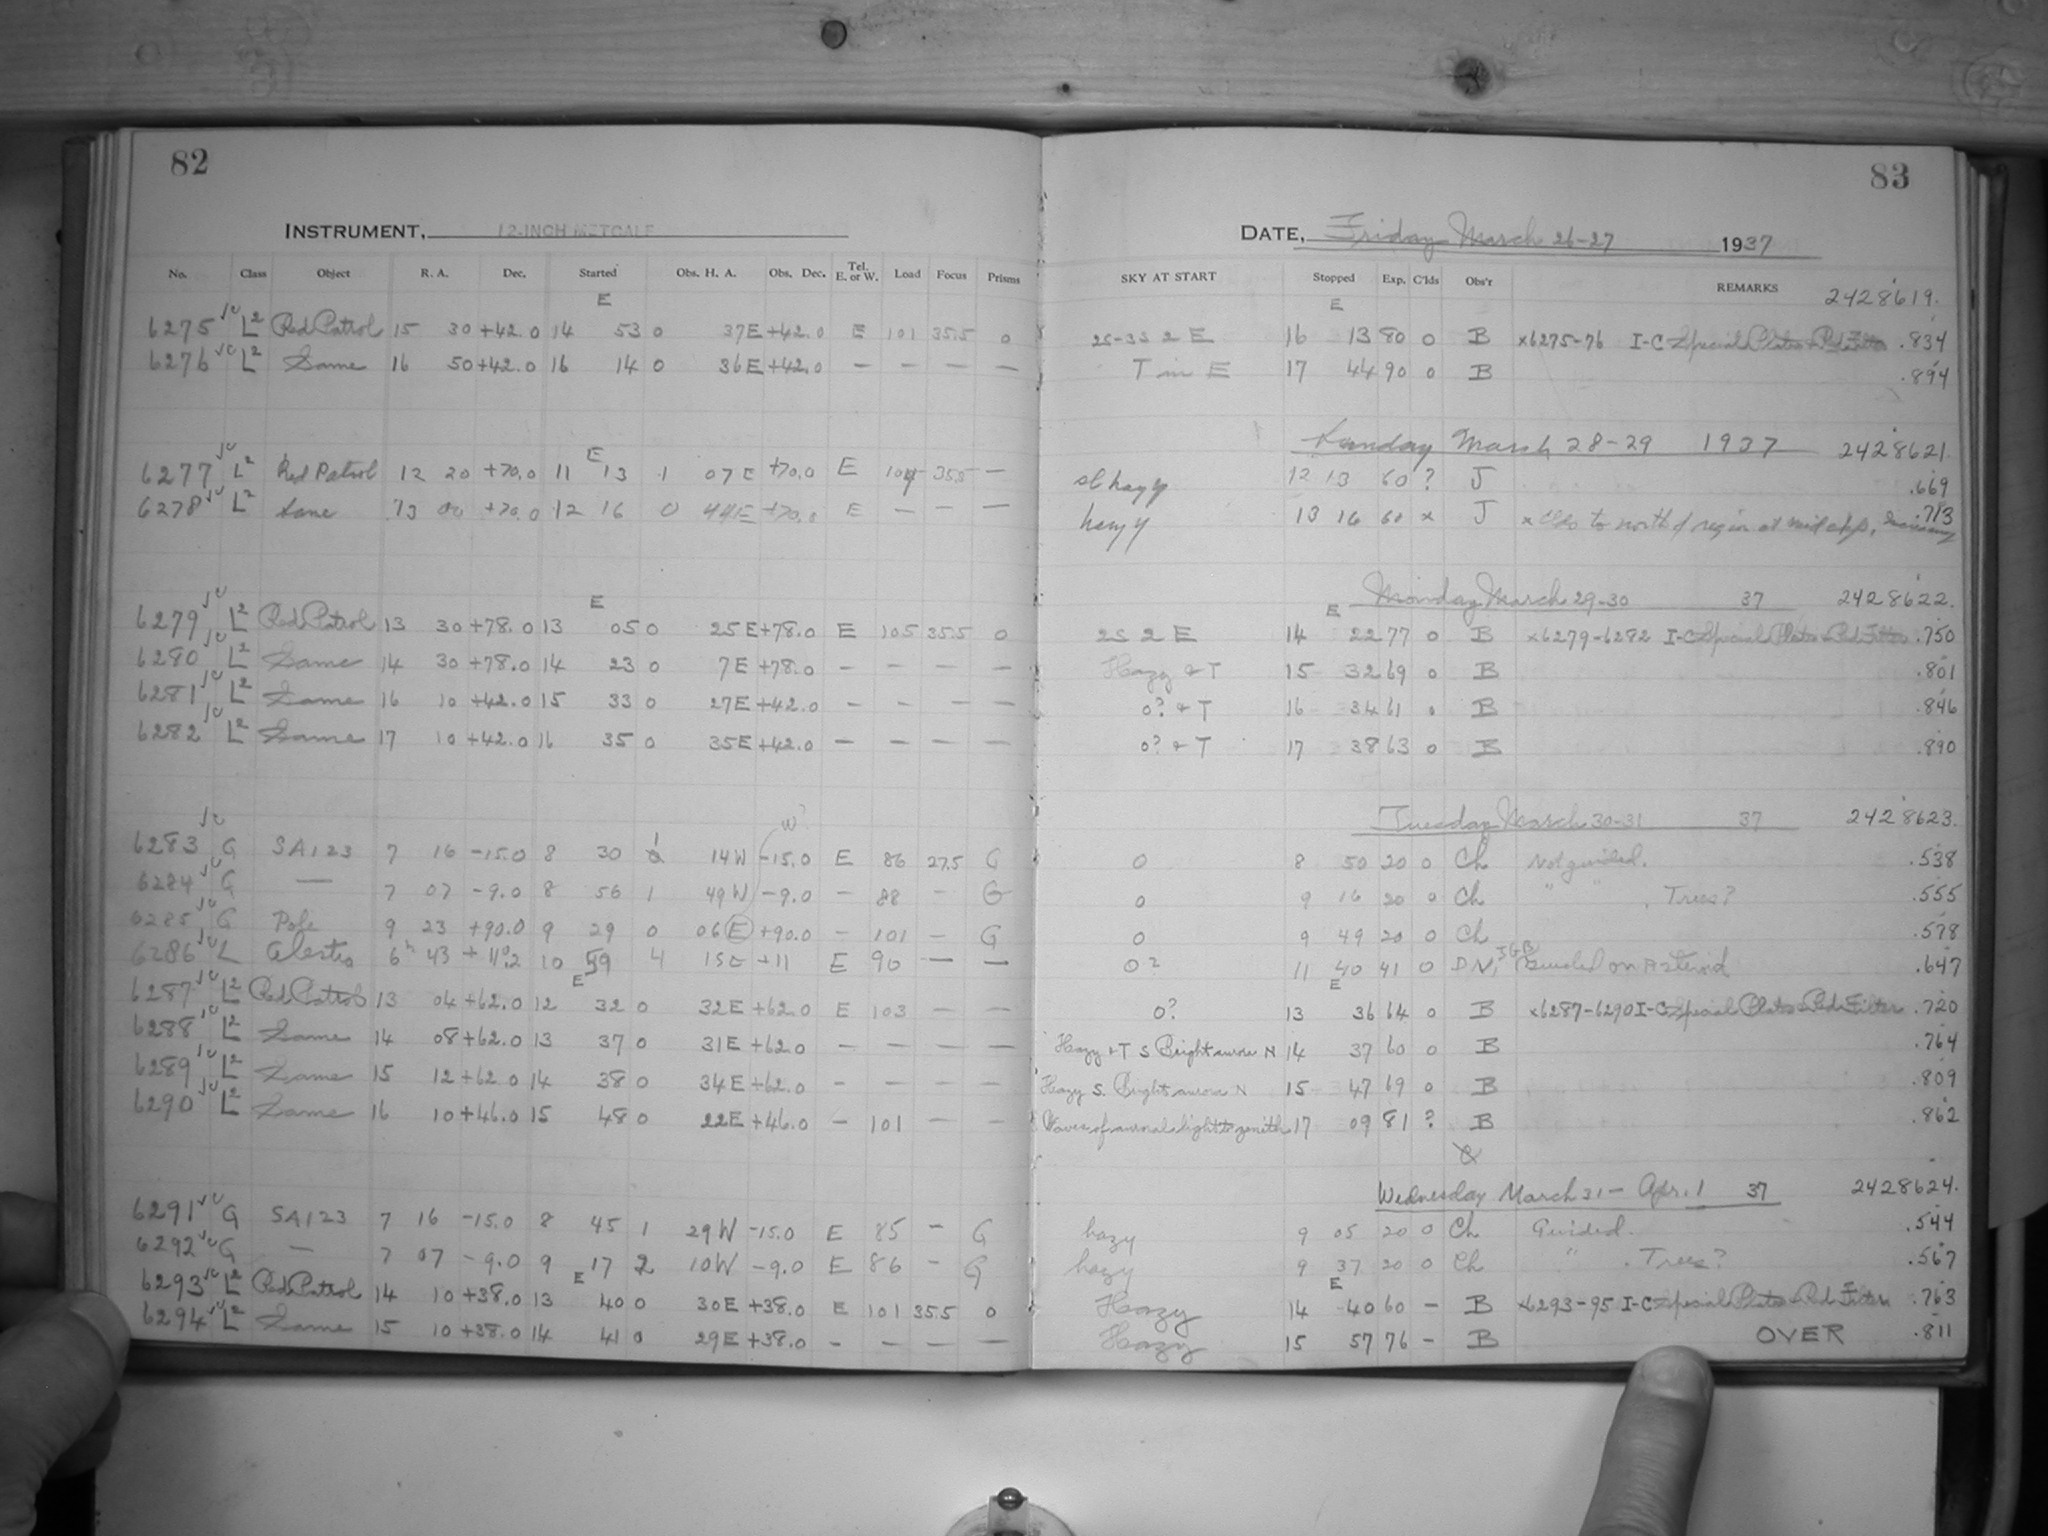 82
INSTRUMENT, 12-INCH METCALF
No. Class Object R. A. Dec. Started Obs. H. A. Obs. Dec. Tel. E. or W. Load Focus Prisms
E
6275 L2 Red Patrol 15 30 +42.0 14 53 0 37E +42.0 E 101 35.5 0
6276 L2 Same 16 50 +42.0 16 14 0 36E +42.0 — — — —
E
6277 L2 Red Patrol 12 20 +70.0 11 13 1 07E +70.0 E 104 35.5 —
6278 L2 Same 13 00 +70.0 12 16 0 44E +70.0 E — — —
E
6279 L2 Red Patrol 13 30 +78.0 13 05 0 25E +78.0 E 105 35.5 0
6280 L2 Same 14 30 +78.0 14 23 0 7E +78.0 — — — —
6281 L2 Same 16 10 +42.0 15 33 0 27E +42.0 — — — —
6282 L2 Same 17 10 +42.0 16 35 0 35E +42.0 — — — —
W?
6283 G SA123 7 16 -15.0 8 30 1 14W -15.0 E 86 27.5 G
6284 G — 7 07 -9.0 8 56 1 49W -9.0 — 88 — G
6285 G Pole 9 23 +90.0 9 29 0 06E +90.0 — 101 — G
6286 L 6h 43 +11.2 10 59 4 15E +11 E 90 — —
E
6287 L2 Red Patrol 13 04 +62.0 12 32 0 32E +62.0 E 103 — —
6288 L2 Same 14 08 +62.0 13 37 0 31E +62.0 — — — —
6289 L2 Same 15 12 +62.0 14 38 0 34E +62.0 — — — —
6290 L2 Same 16 10 +46.0 15 48 0 22E +46.0 — 101 — —
6291 G SA123 7 16 -15.0 8 45 1 29W -15.0 E 85 — G
6292 G — 7 07 -9.0 9 17 2 10W -9.0 E 86 — G
E
6293 L2 Red Patrol 14 10 +38.0 13 40 0 30E +38.0 E 101 35.5 0
6294 L2 Same 15 10 +38.0 14 41 0 29E +38.0 — — — —
83
DATE, Friday March 26-27 1937
SKY AT START Stopped Exp. C'lds Obs'r REMARKS
2428619.
E
25-35 2 E 16 13 80 0 B x6275-76 I-C Special Plates + Red Filter .834
T in E 17 44 90 0 B .894
Sunday March 28-29 1937 2428621.
sl hazy 12 13 60 ? J .669
hazy 13 16 60 x J x Clds to north of region at mid exp. .713
Monday March 29-30 37 2428622.
E
25 2 E 14 22 77 0 B x6279-6282 I-C Special Plates + Red Filter .750
Hazy + T 15 32 69 0 B .801
0? + T 16 34 61 0 B .846
0? + T 17 38 63 0 B .890
Tuesday March 30-31 37 2428623.
0 8 50 20 0 Ch Not guided. .538
0 9 16 20 0 Ch " " . Trees? .555
0 9 49 20 0 Ch .578
0? 11 40 41 0 D.N. Guided on Asteroid .647
E
0? 13 36 64 0 B x6287-6290 I-C Special Plates + Red Filter .720
Hazy + T S Bright aurora N 14 37 60 0 B .764
Hazy S. Bright aurora N 15 47 69 0 B .809
Waves of auroral light to zenith 17 09 81 ? B .862
Wednesday March 31 - Apr. 1 37 2428624.
hazy 9 05 20 0 Ch Guided. .544
hazy 9 37 20 0 Ch " . Trees? .567
E
Hazy 14 40 60 — B x6293-95 I-C Special Plates + Red Filter .763
Hazy 15 57 76 — B OVER .811